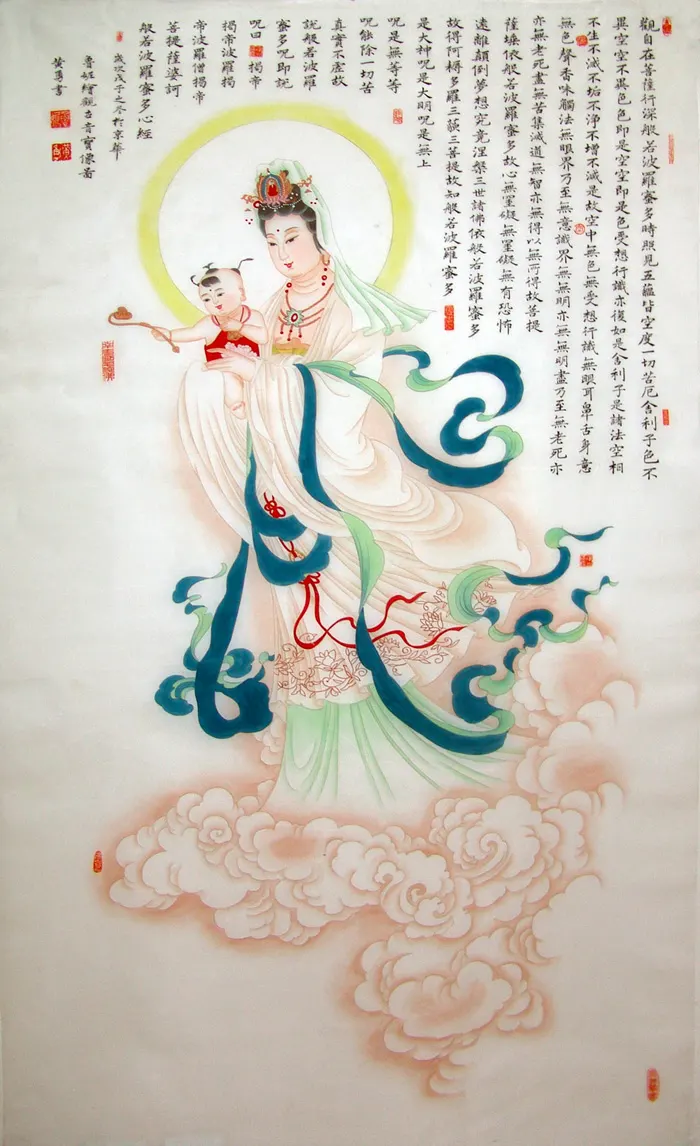 觀自在菩薩行深般若波羅蜜多時照見五蘊皆空度一切苦厄舍利子色不
異空空不異色色即是空空即是色受想行識亦復如是舍利子是諸法空相
不生不滅不垢不淨不增不減是故空中無色無受想行識無眼耳鼻舌身意
無色聲香味觸法無眼界乃至無意識界無無明亦無無明盡乃至無老死亦
亦無老死盡無苦集滅道無智亦無得以無所得故菩提
薩埵依般若波羅蜜多故心無罣礙無罣礙無有恐怖
遠離顛倒夢想究竟涅槃三世諸佛依般若波羅蜜多
故得阿耨多羅三藐三菩提故知般若波羅蜜多
是大神呪是大明呪是無上
呪是無等等
呪能除一切苦
真實不虛故
說般若波羅
蜜多呪即說
呪曰 揭帝
揭帝波羅揭
帝波羅僧揭帝
菩提薩婆訶
般若波羅蜜多心經
歲次戊子之冬於京華
繪觀音寶像
黃書